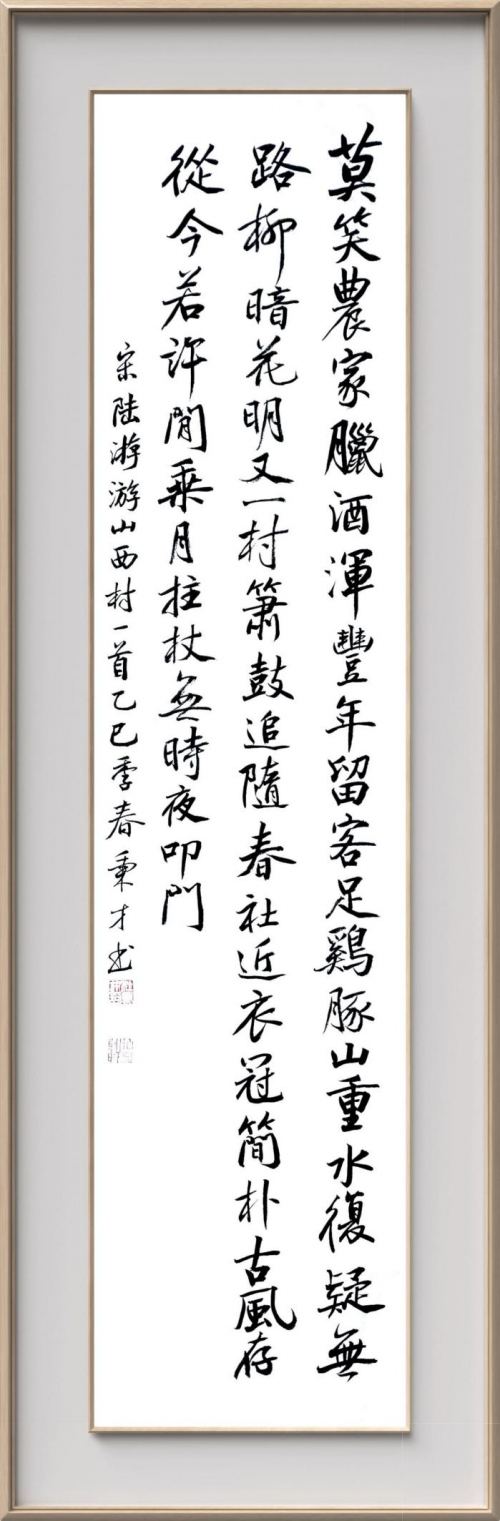 莫笑農家臘酒渾豐年留客足鷄豚山重水復疑無
路柳暗花明又一村簫鼓追隨春社近衣冠簡朴古風存
從今若許閒乗月拄杖無時夜叩門
宋陆游游山西村一首乙巳季春秉才书